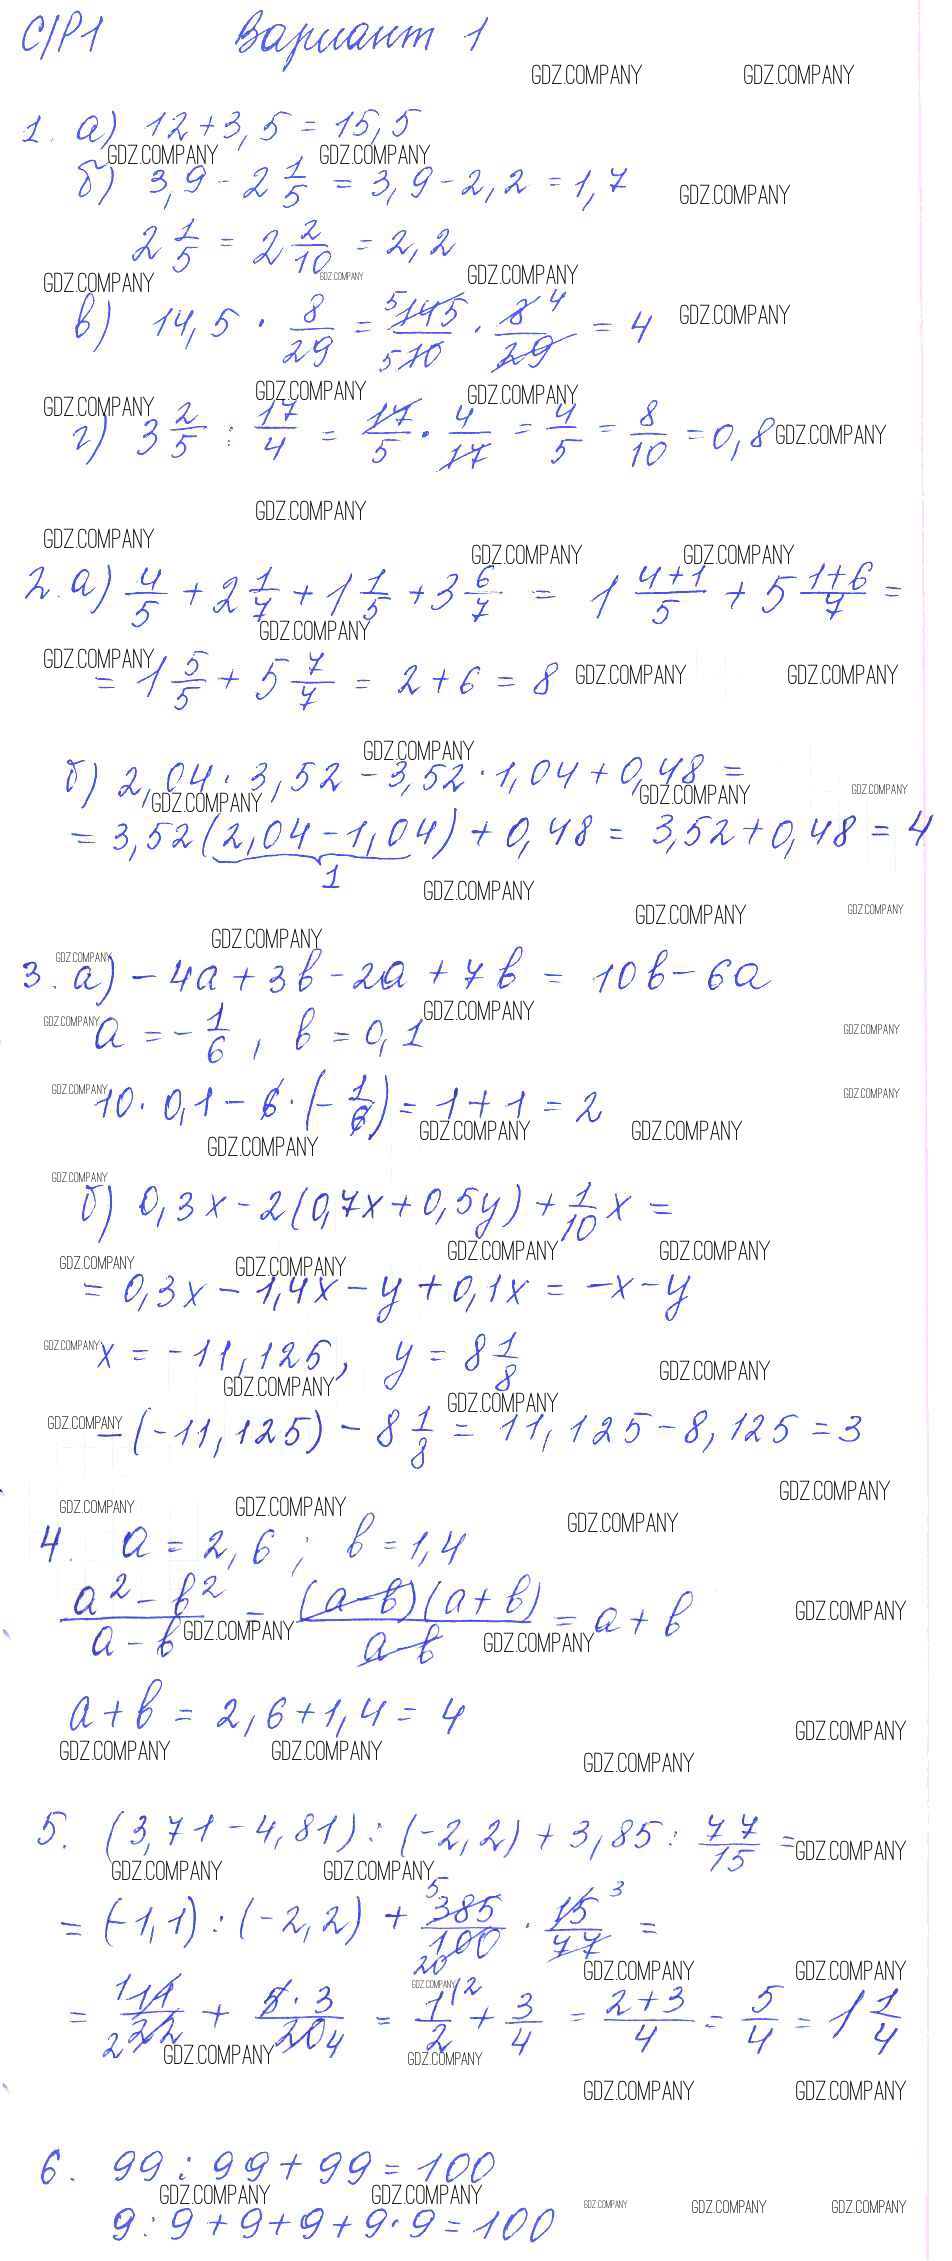 С/Р1 Вариант 1
GDZ.COMPANY GDZ.COMPANY
1. а) 12 + 3,5 = 15,5
GDZ.COMPANY GDZ.COMPANY
б) 3,9 - 2 1/5 = 3,9 - 2,2 = 1,7 GDZ.COMPANY
2 1/5 = 2 2/10 = 2,2
GDZ.COMPANY GDZ.COMPANY GDZ.COMPANY
в) 14,5 · 8/29 = 5 145/5 10 · 8 4/29 = 4 GDZ.COMPANY
GDZ.COMPANY GDZ.COMPANY GDZ.COMPANY
г) 3 2/5 : 17/4 = 17/5 · 4/17 = 4/5 = 8/10 = 0,8 GDZ.COMPANY
GDZ.COMPANY
GDZ.COMPANY GDZ.COMPANY GDZ.COMPANY
2. а) 4/5 + 2 1/7 + 1 1/5 + 3 6/7 = 1 4+1/5 + 5 1+6/7 =
GDZ.COMPANY
GDZ.COMPANY = 1 5/5 + 5 7/7 = 2 + 6 = 8 GDZ.COMPANY GDZ.COMPANY
GDZ.COMPANY
б) 2,04 · 3,52 - 3,52 · 1,04 + 0,48 =
GDZ.COMPANY GDZ.COMPANY GDZ.COMPANY
= 3,52 (2,04 - 1,04) + 0,48 = 3,52 + 0,48 = 4
1
GDZ.COMPANY
GDZ.COMPANY GDZ.COMPANY
GDZ.COMPANY GDZ.COMPANY
3. а) - 4a + 3b - 2a + 7b = 10b - 6a
GDZ.COMPANY GDZ.COMPANY GDZ.COMPANY
a = - 1/6 , b = 0,1
GDZ.COMPANY GDZ.COMPANY
10 · 0,1 - 6 · (- 1/6) = 1 + 1 = 2
GDZ.COMPANY GDZ.COMPANY GDZ.COMPANY
GDZ.COMPANY
б) 0,3x - 2(0,7x + 0,5y) + 1/10 x =
GDZ.COMPANY GDZ.COMPANY GDZ.COMPANY GDZ.COMPANY
= 0,3x - 1,4x - y + 0,1x = -x - y
GDZ.COMPANY x = -11,125, y = 8 1/8 GDZ.COMPANY
GDZ.COMPANY GDZ.COMPANY
GDZ.COMPANY - (-11,125) - 8 1/8 = 11,125 - 8,125 = 3
GDZ.COMPANY GDZ.COMPANY GDZ.COMPANY GDZ.COMPANY
4. a = 2,6 ; b = 1,4
a² - b²/a - b = (a-b)(a+b)/a-b = a + b GDZ.COMPANY
GDZ.COMPANY GDZ.COMPANY
a + b = 2,6 + 1,4 = 4 GDZ.COMPANY
GDZ.COMPANY GDZ.COMPANY GDZ.COMPANY
5. (3,71 - 4,81) : (-2,2) + 3,85 : 77/15 = GDZ.COMPANY
GDZ.COMPANY GDZ.COMPANY
= (-1,1) : (-2,2) + 5 385/20 100 · 15 3/77 =
GDZ.COMPANY GDZ.COMPANY GDZ.COMPANY
= 1 11/2 22 + 5·3/20 4 = 1/2 \2 + 3/4 = 2+3/4 = 5/4 = 1 1/4
GDZ.COMPANY GDZ.COMPANY
GDZ.COMPANY GDZ.COMPANY
6. 99 : 99 + 99 = 100
GDZ.COMPANY GDZ.COMPANY GDZ.COMPANY GDZ.COMPANY GDZ.COMPANY
9 : 9 + 9 + 9 + 9 · 9 = 100